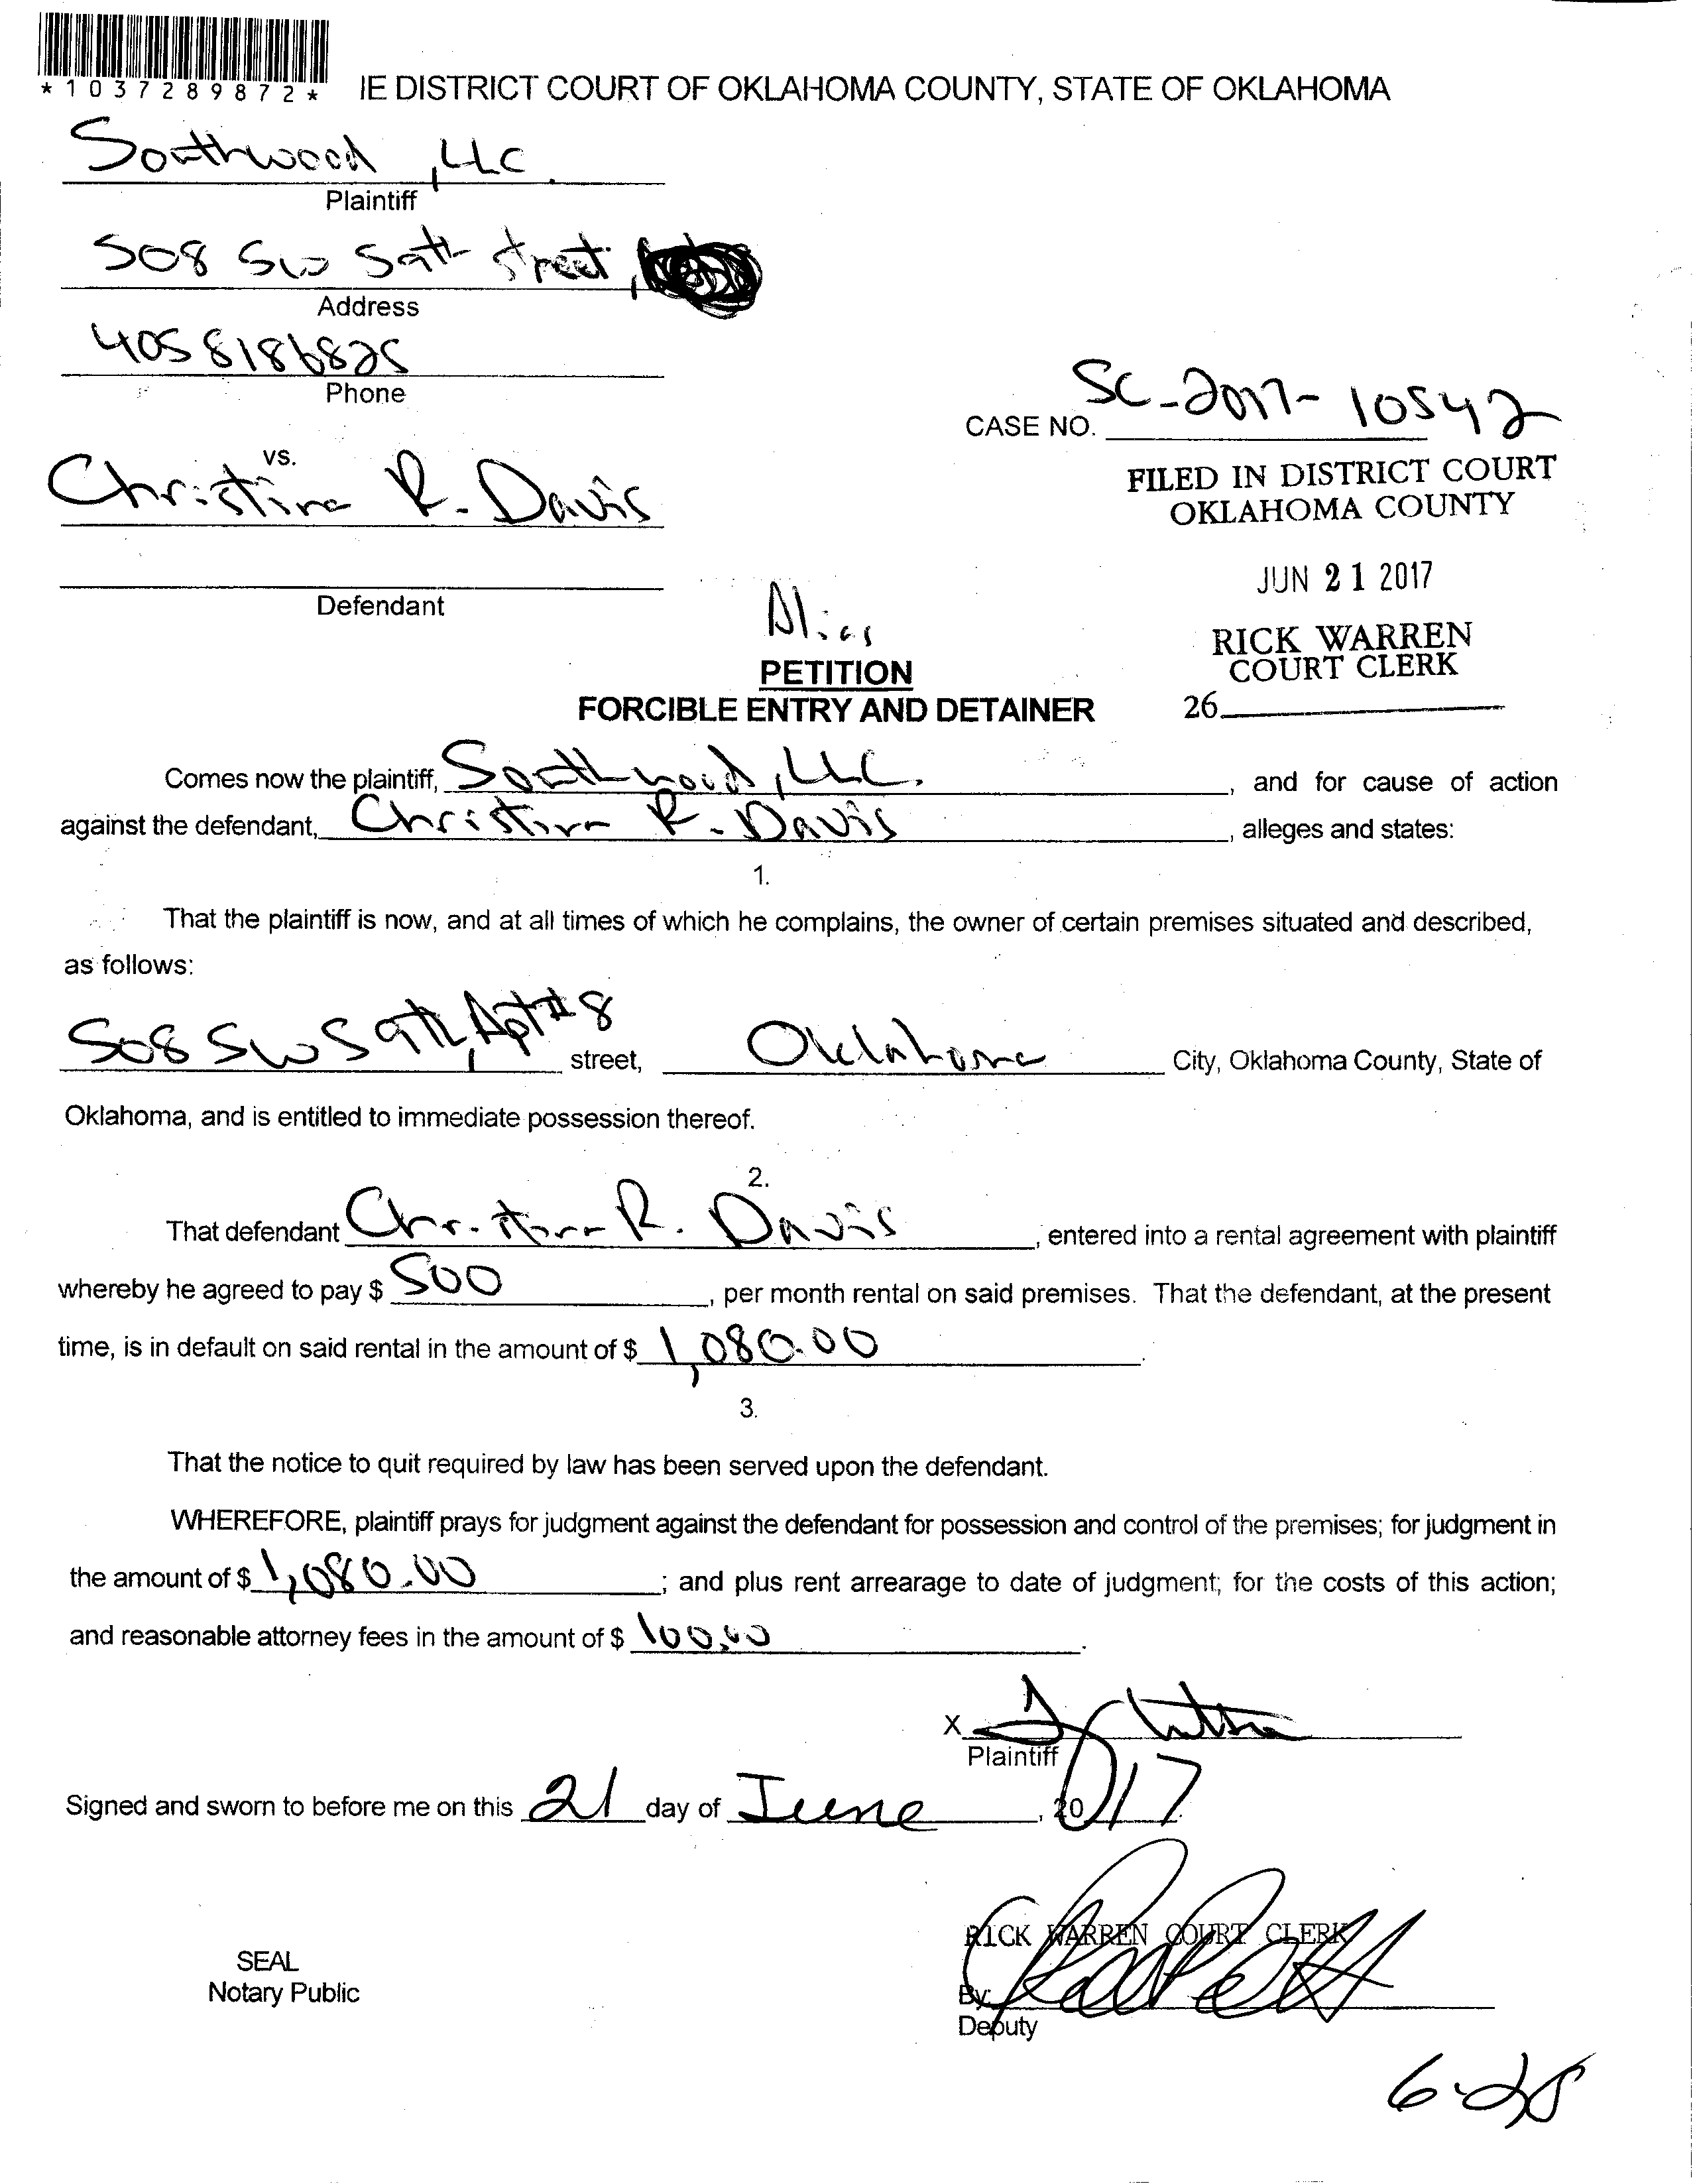 *1037289872*
IE DISTRICT COURT OF OKLAHOMA COUNTY, STATE OF OKLAHOMA
Southwood, LLC.
Plaintiff
508 SW 59th street,
Address
4058186825
Phone
CASE NO. SC-2017-10542
vs.
Christina R. Davis
FILED IN DISTRICT COURT
OKLAHOMA COUNTY
JUN 21 2017
Defendant
Alias
RICK WARREN
COURT CLERK
PETITION
FORCIBLE ENTRY AND DETAINER
26
Comes now the plaintiff, Southwood, LLC. , and for cause of action
against the defendant, Christina R. Davis , alleges and states:
1.
That the plaintiff is now, and at all times of which he complains, the owner of certain premises situated and described,
as follows:
508 SW 59th, Apt#8 street, Oklahoma City, Oklahoma County, State of
Oklahoma, and is entitled to immediate possession thereof.
2.
That defendant Christina R. Davis , entered into a rental agreement with plaintiff
whereby he agreed to pay $ 500 , per month rental on said premises. That the defendant, at the present
time, is in default on said rental in the amount of $ 1,080.00 .
3.
That the notice to quit required by law has been served upon the defendant.
WHEREFORE, plaintiff prays for judgment against the defendant for possession and control of the premises; for judgment in
the amount of $ 1,080.00 ; and plus rent arrearage to date of judgment; for the costs of this action;
and reasonable attorney fees in the amount of $ 100.00 .
X
Plaintiff
Signed and sworn to before me on this 21 day of June , 2017.
RICK WARREN COURT CLERK
SEAL
Notary Public
By:
Deputy
6-28